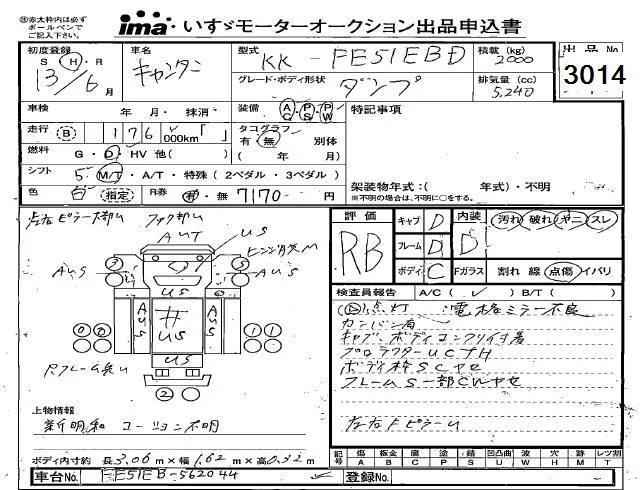 ㊟赤太枠内は必ず
ボールペンで
ご記入下さい。
ima いすゞモーターオークション出品申込書
初度登録
S H・R
13/6月
車名
キャンター
型式
KK-FE51EBD
積載(kg)
2000
出品No
3014
グレード・ボディ形状
ダンプ
排気量(cc)
5,240
車検 年・月・抹消
装備 AC PS PW
特記事項
走行 B 176 000km「 」
タコグラフ
有・無 別体
( 年 月)
燃料 G・D・HV 他( )
シフト 5 M/T・A/T・特殊(2ペダル・3ペダル)
色 白 (指定)
R券 有・無 7170-円
架装物年式:( 年式)・不明
※不明の場合は、不明に○をする。
評価 RB
キャブ D
フレーム D
ボディ C
内装 D
汚れ・破れ・ヤニ・スレ
Fガラス 割れ 線 点傷 イバリ
左右ピラー
AUT
US
AUS
AUS
US
AUS
井
US
AUS
US
0 0
1 1
2
検査員報告 A/C( ✓ ) B/T( )
点灯 電格ミラー不良
カンバン有
キャブ、ボディコンクリ付着
ボディ枠SCヤセ
フレームS一部CWヤセ
左右Fピラーu
上物情報
新明和 コーション不明
ボディ内寸約 長3.06m×幅1.62m×高0.32m
記号 傷 板金 腐 塗 錆 凹凸曲 波 穴 跡 レンズ割
A B C P S U W H M T
車台No. FE51EB-562044
登録No.